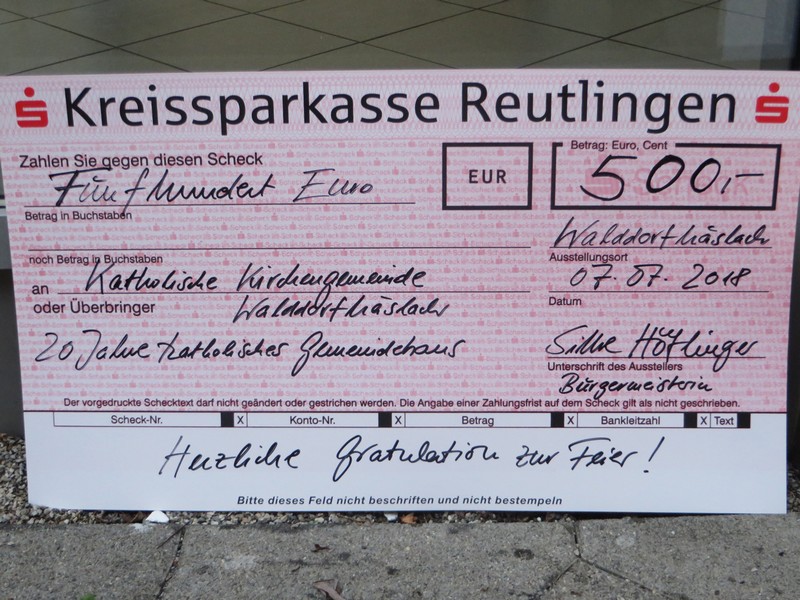 Kreissparkasse Reutlingen
Zahlen Sie gegen diesen Scheck
Fünfhundert Euro
EUR
Betrag: Euro, Cent
500,-
Betrag in Buchstaben
Walddorfhäslach
noch Betrag in Buchstaben
Ausstellungsort
an Katholische Kirchengemeinde
07.07.2018
oder Überbringer Walddorfhäslach
Datum
20 Jahre katholisches Gemeindehaus
Silke Höflinger
Unterschrift des Ausstellers
Bürgermeisterin
Der vorgedruckte Schecktext darf nicht geändert oder gestrichen werden. Die Angabe einer Zahlungsfrist auf dem Scheck gilt als nicht geschrieben.
Scheck-Nr. X Konto-Nr. X Betrag X Bankleitzahl X Text
Herzliche Gratulation zur Feier!
Bitte dieses Feld nicht beschriften und nicht bestempeln